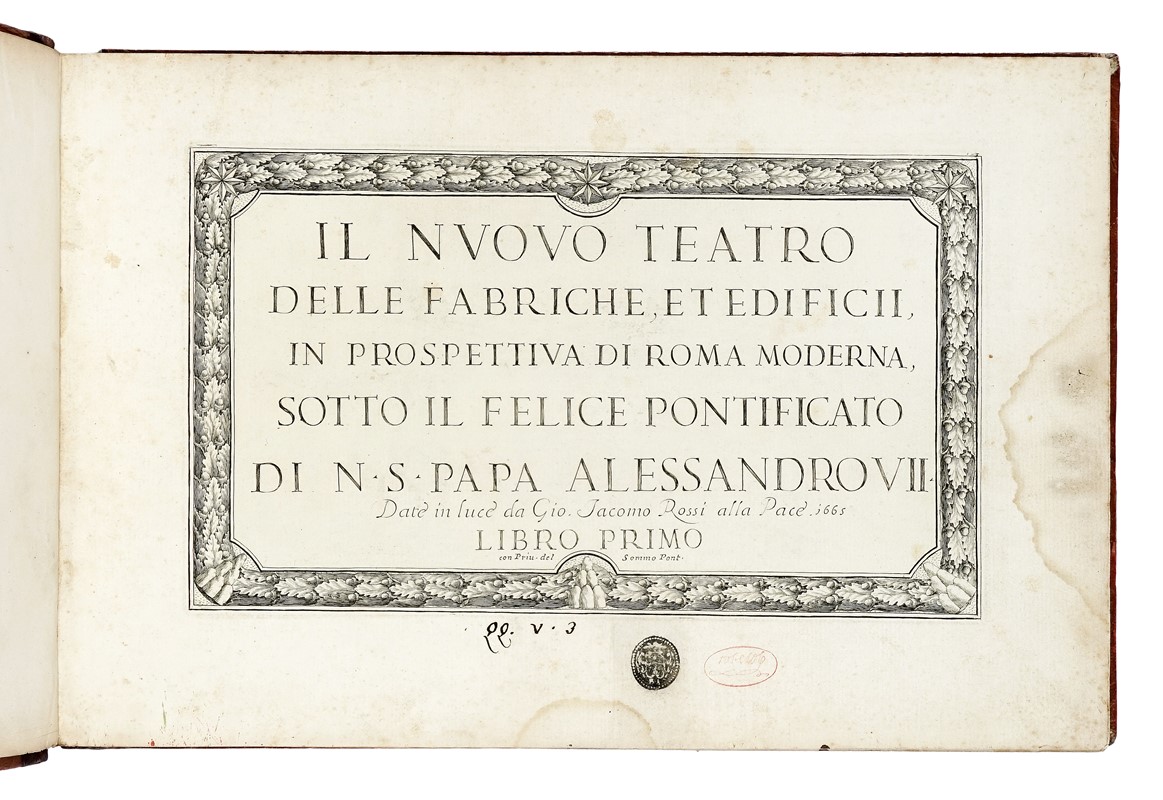 IL NVOVO TEATRO
DELLE FABRICHE, ET EDIFICII,
IN PROSPETTIVA DI ROMA MODERNA,
SOTTO IL FELICE PONTIFICATO
DI N·S·PAPA ALESSANDRO VII·
Date in luce da Gio. Iacomo Rossi alla Pace. 1665
LIBRO PRIMO
con Priu. del Sommo Pont.
QQ. V. 3